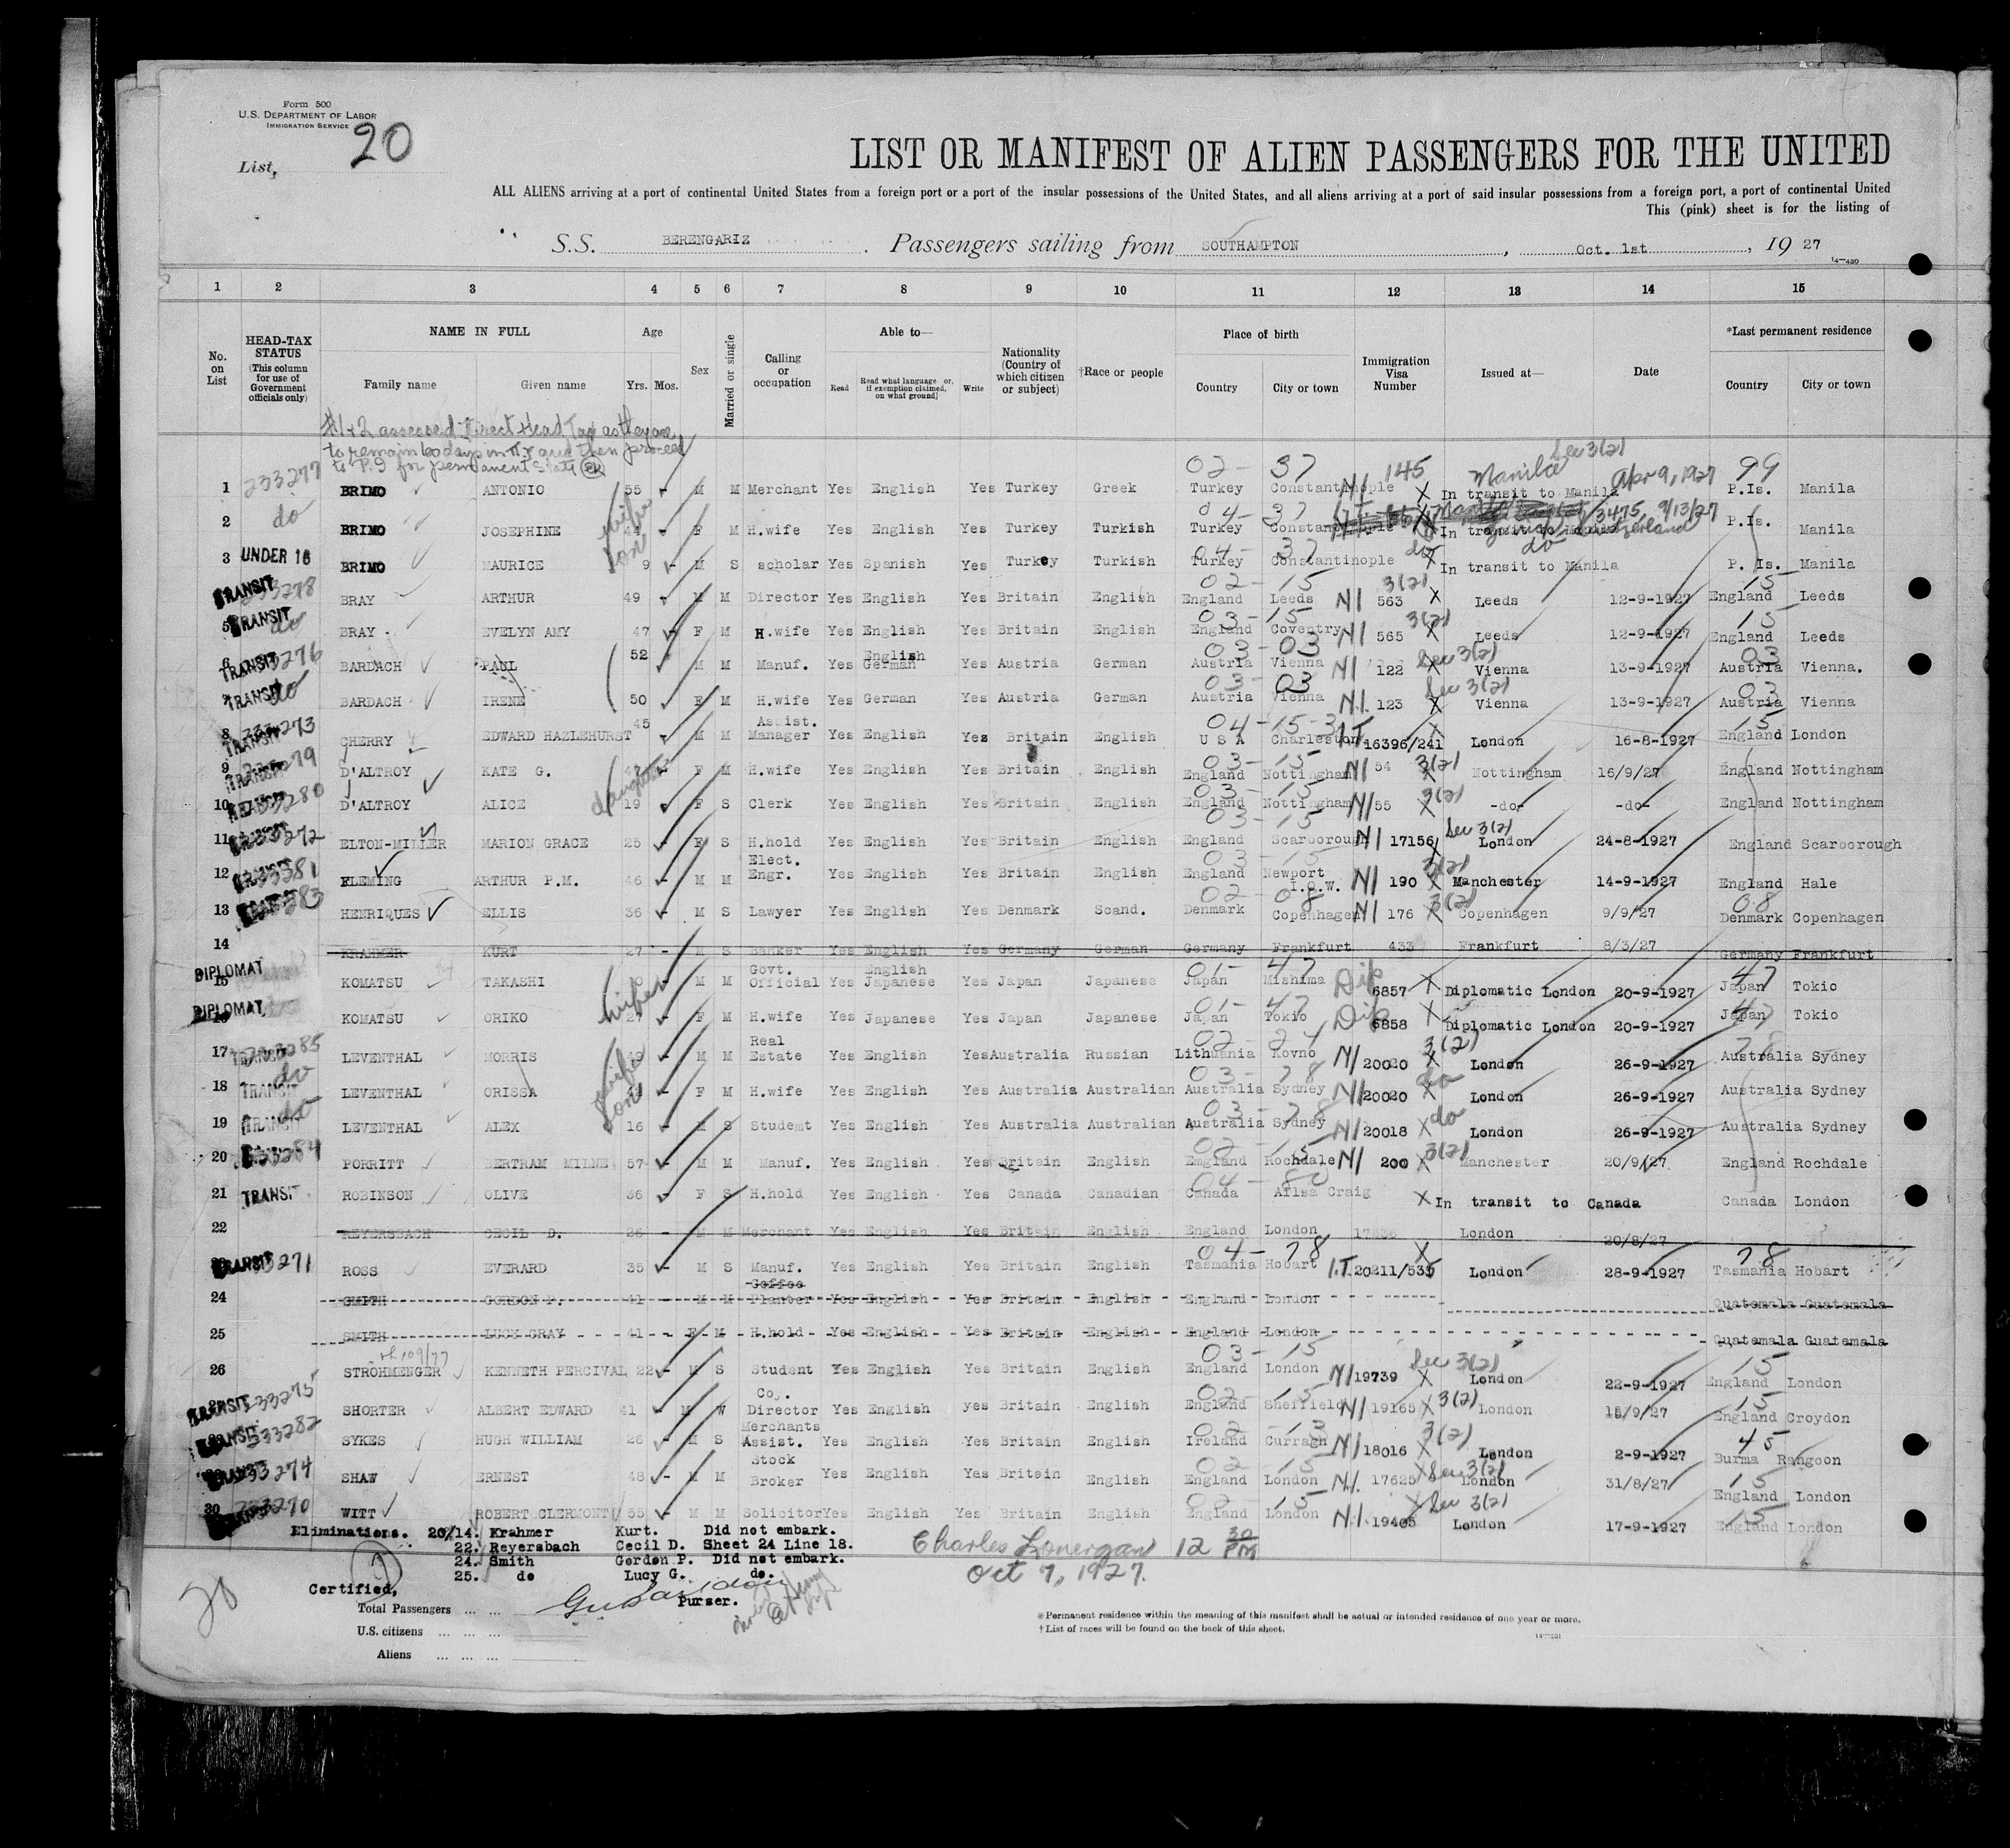 Form 500
U.S. DEPARTMENT OF LABOR
IMMIGRATION SERVICE
List, 20
LIST OR MANIFEST OF ALIEN PASSENGERS FOR THE UNITED
ALL ALIENS arriving at a port of continental United States from a foreign port or a port of the insular possessions of the United States, and all aliens arriving at a port of said insular possessions from a foreign port, a port of continental United
This (pink) sheet is for the listing of
S.S. BERENGARIZ Passengers sailing from SOUTHAMPTON, Oct. 1st, 19 27
14—480
1 2 3 4 5 6 7 8 9 10 11 12 13 14 15
No. on List
HEAD-TAX STATUS (This column for use of Government officials only)
NAME IN FULL Family name Given name
Age Yrs. Mos.
Sex
Married or single
Calling or occupation
Able to— Read Read what language or, if exemption claimed, on what ground] Write
Nationality (Country of which citizen or subject)
†Race or people
Place of birth Country City or town
Immigration Visa Number
Issued at—
Date
*Last permanent residence Country City or town
#1+2 assessed Direct Head Tax as they are
to remain 60 days in and then proceed
to P.I. for permanent stay
02 - 37 145 Manila Sec 3(2) Apr 9, 1927 99
1 233277 BRIMO ANTONIO 55 - M M Merchant Yes English Yes Turkey Greek Turkey Constantinople X In transit to Manila P.Is. Manila
04 - 37 3475, 9/13/27
2 do BRIMO JOSEPHINE wife F M H.wife Yes English Yes Turkey Turkish Turkey Constantinople In transit to Manila P.Is. Manila
04 - 37 do do
3 UNDER 16 BRIMO MAURICE son 9 - M S scholar Yes Spanish Yes Turkey Turkish Turkey Constantinople In transit to Manila P. Is. Manila
02 - 15 3(2) 15
TRANSIT 233278 BRAY ARTHUR 49 - M M Director Yes English Yes Britain English England Leeds NI 563 X Leeds 12-9-1927 England Leeds
03 - 15 3(2) 15
5 TRANSIT do BRAY EVELYN AMY 47 - F M H.wife Yes English Yes Britain English England Coventry NI 565 X Leeds 12-9-1927 England Leeds
03 - 03 Sec 3(2) 03
6 TRANSIT 233276 BARDACH PAUL 52 M M Manuf. Yes English German Yes Austria German Austria Vienna NI 122 X Vienna 13-9-1927 Austria Vienna.
03 - 03 Sec 3(2) 03
7 TRANSIT do BARDACH IRENE 50 F M H.wife Yes German Yes Austria German Austria Vienna N.I. 123 X Vienna 13-9-1927 Austria Vienna
04 - 15 15
8 TRANSIT 233273 CHERRY EDWARD HAZLEHURST 45 - M M Assist. Manager Yes English Yes Britain English U S A Charleston I.T. 16396/241 London 16-8-1927 England London
03 - 15 3(2)
9 TRANSIT D'ALTROY KATE G. F M H.wife Yes English Yes Britain English England Nottingham NI 54 X Nottingham 16/9/27 England Nottingham
03 - 15 3(2)
10 TRANSIT 233280 D'ALTROY ALICE daughter 19 F S Clerk Yes English Yes Britain English England Nottingham NI 55 X -do- -do- England Nottingham
03 - 15 Sec 3(2)
11 233272 ELTON-MILLER MARION GRACE 25 - F S H.hold Yes English Yes Britain English England Scarborou NI 17156 X London 24-8-1927 England Scarborough
03 - 15 3(2)
12 FLEMING ARTHUR P.M. 46 - M M Elect. Engr. Yes English Yes Britain English England Newport I.O.W. NI 190 X Manchester 14-9-1927 England Hale
02 - 08 3(2) 08
13 HENRIQUES ELLIS 36 - M S Lawyer Yes English Yes Denmark Scand. Denmark Copenhagen NI 176 X Copenhagen 9/9/27 Denmark Copenhagen
14 KRAHMER KURT 27 - M S Banker Yes English Yes Germany German Germany Frankfurt 433 Frankfurt 8/3/27 Germany Frankfurt
01 - 47 47
DIPLOMAT 15 KOMATSU TAKASHI M M Govt. Official Yes English Japanese Yes Japan Japanese Japan Mishima Dip 6857 X Diplomatic London 20-9-1927 Japan Tokio
01 - 47 47
DIPLOMAT KOMATSU ORIKO wife 27 F M H.wife Yes Japanese Yes Japan Japanese Japan Tokio Dip 6858 X Diplomatic London 20-9-1927 Japan Tokio
02 - 24 3(2) 78
17 TRANSIT 233285 LEVENTHAL MORRIS M M Real Estate Yes English Yes Australia Russian Lithuania Kovno NI 20020 X London 26-9-1927 Australia Sydney
03 - 78 do
18 TRANSIT do LEVENTHAL ORISSA wife F M H.wife Yes English Yes Australia Australian Australia Sydney NI 20020 X London 26-9-1927 Australia Sydney
03 - 78 do
19 TRANSIT do LEVENTHAL ALEX son 16 M S Student Yes English Yes Australia Australian Australia Sydney NI 20018 X London 26-9-1927 Australia Sydney
02 - 15 3(2)
20 PORRITT BERTRAM MILNE 57 - M M Manuf. Yes English Yes Britain English England Rochdale NI 200 X Manchester 20/9/27 England Rochdale
04 - 80
21 TRANSIT ROBINSON OLIVE 36 F S H.hold Yes English Yes Canada Canadian Canada Ailsa Craig X In transit to Canada Canada London
22 REYERSBACH CECIL D. 26 - M M Merchant Yes English Yes Britain English England London London 20/8/27
04 - 78 78
TRANSIT 233271 ROSS EVERARD 35 - M S Manuf. Yes English Yes Britain English Tasmania Hobart I.T. 20211/535 London 28-9-1927 Tasmania Hobart
24 SMITH GORDON P. 41 - M M Coffee Planter Yes English Yes Britain English England London Quatemala Guatemala
25 SMITH LUCY GRAY 41 - F M H.hold Yes English Yes Britain English England London Quatemala Guatemala
03 - 15 Sec 3(2) 15
26 STROHMENGER KENNETH PERCIVAL 22 - M S Student Yes English Yes Britain English England London NI 19739 X London 22-9-1927 England London
02 - 15 15
TRANSIT 233275 SHORTER ALBERT EDWARD 41 - M W Coy. Director Yes English yes Britain English England Sheffield NI 19165 X 3(2) London 15/9/27 England Croydon
02 - 13 3(2) 45
TRANSIT 233282 SYKES HUGH WILLIAM 26 - M S Merchants Assist. Yes English Yes Britain English Ireland Curragh NI 18016 X London 2-9-1927 Burma Rangoon
02 - 15 Sec 3(2) 15
TRANSIT 233274 SHAW ERNEST 48 - M M Stock Broker Yes English Yes Britain English England London N.I. 17625 X London 31/8/27 England London
02 - 15 Sec 3(2) 15
30 233270 WITT ROBERT CLERMONT 55 - M M Solicitor Yes English Yes Britain English England London N.I. 19405 X London 17-9-1927 England London
Eliminations. 20/14. Krahmer Kurt. Did not embark.
22. Reyersbach Cecil D. Sheet 24 Line 18.
24. Smith Gordon P. Did not embark.
25. do Lucy G. do.
Charles Lonergan 12 30 PM
Oct 7, 1927.
20
Certified,
Purser.
Total Passengers ... ...
U.S. citizens ... ... ...
Aliens ... ... ...
*Permanent residence within the meaning of this manifest shall be actual or intended residence of one year or more.
†List of races will be found on the back of this sheet.